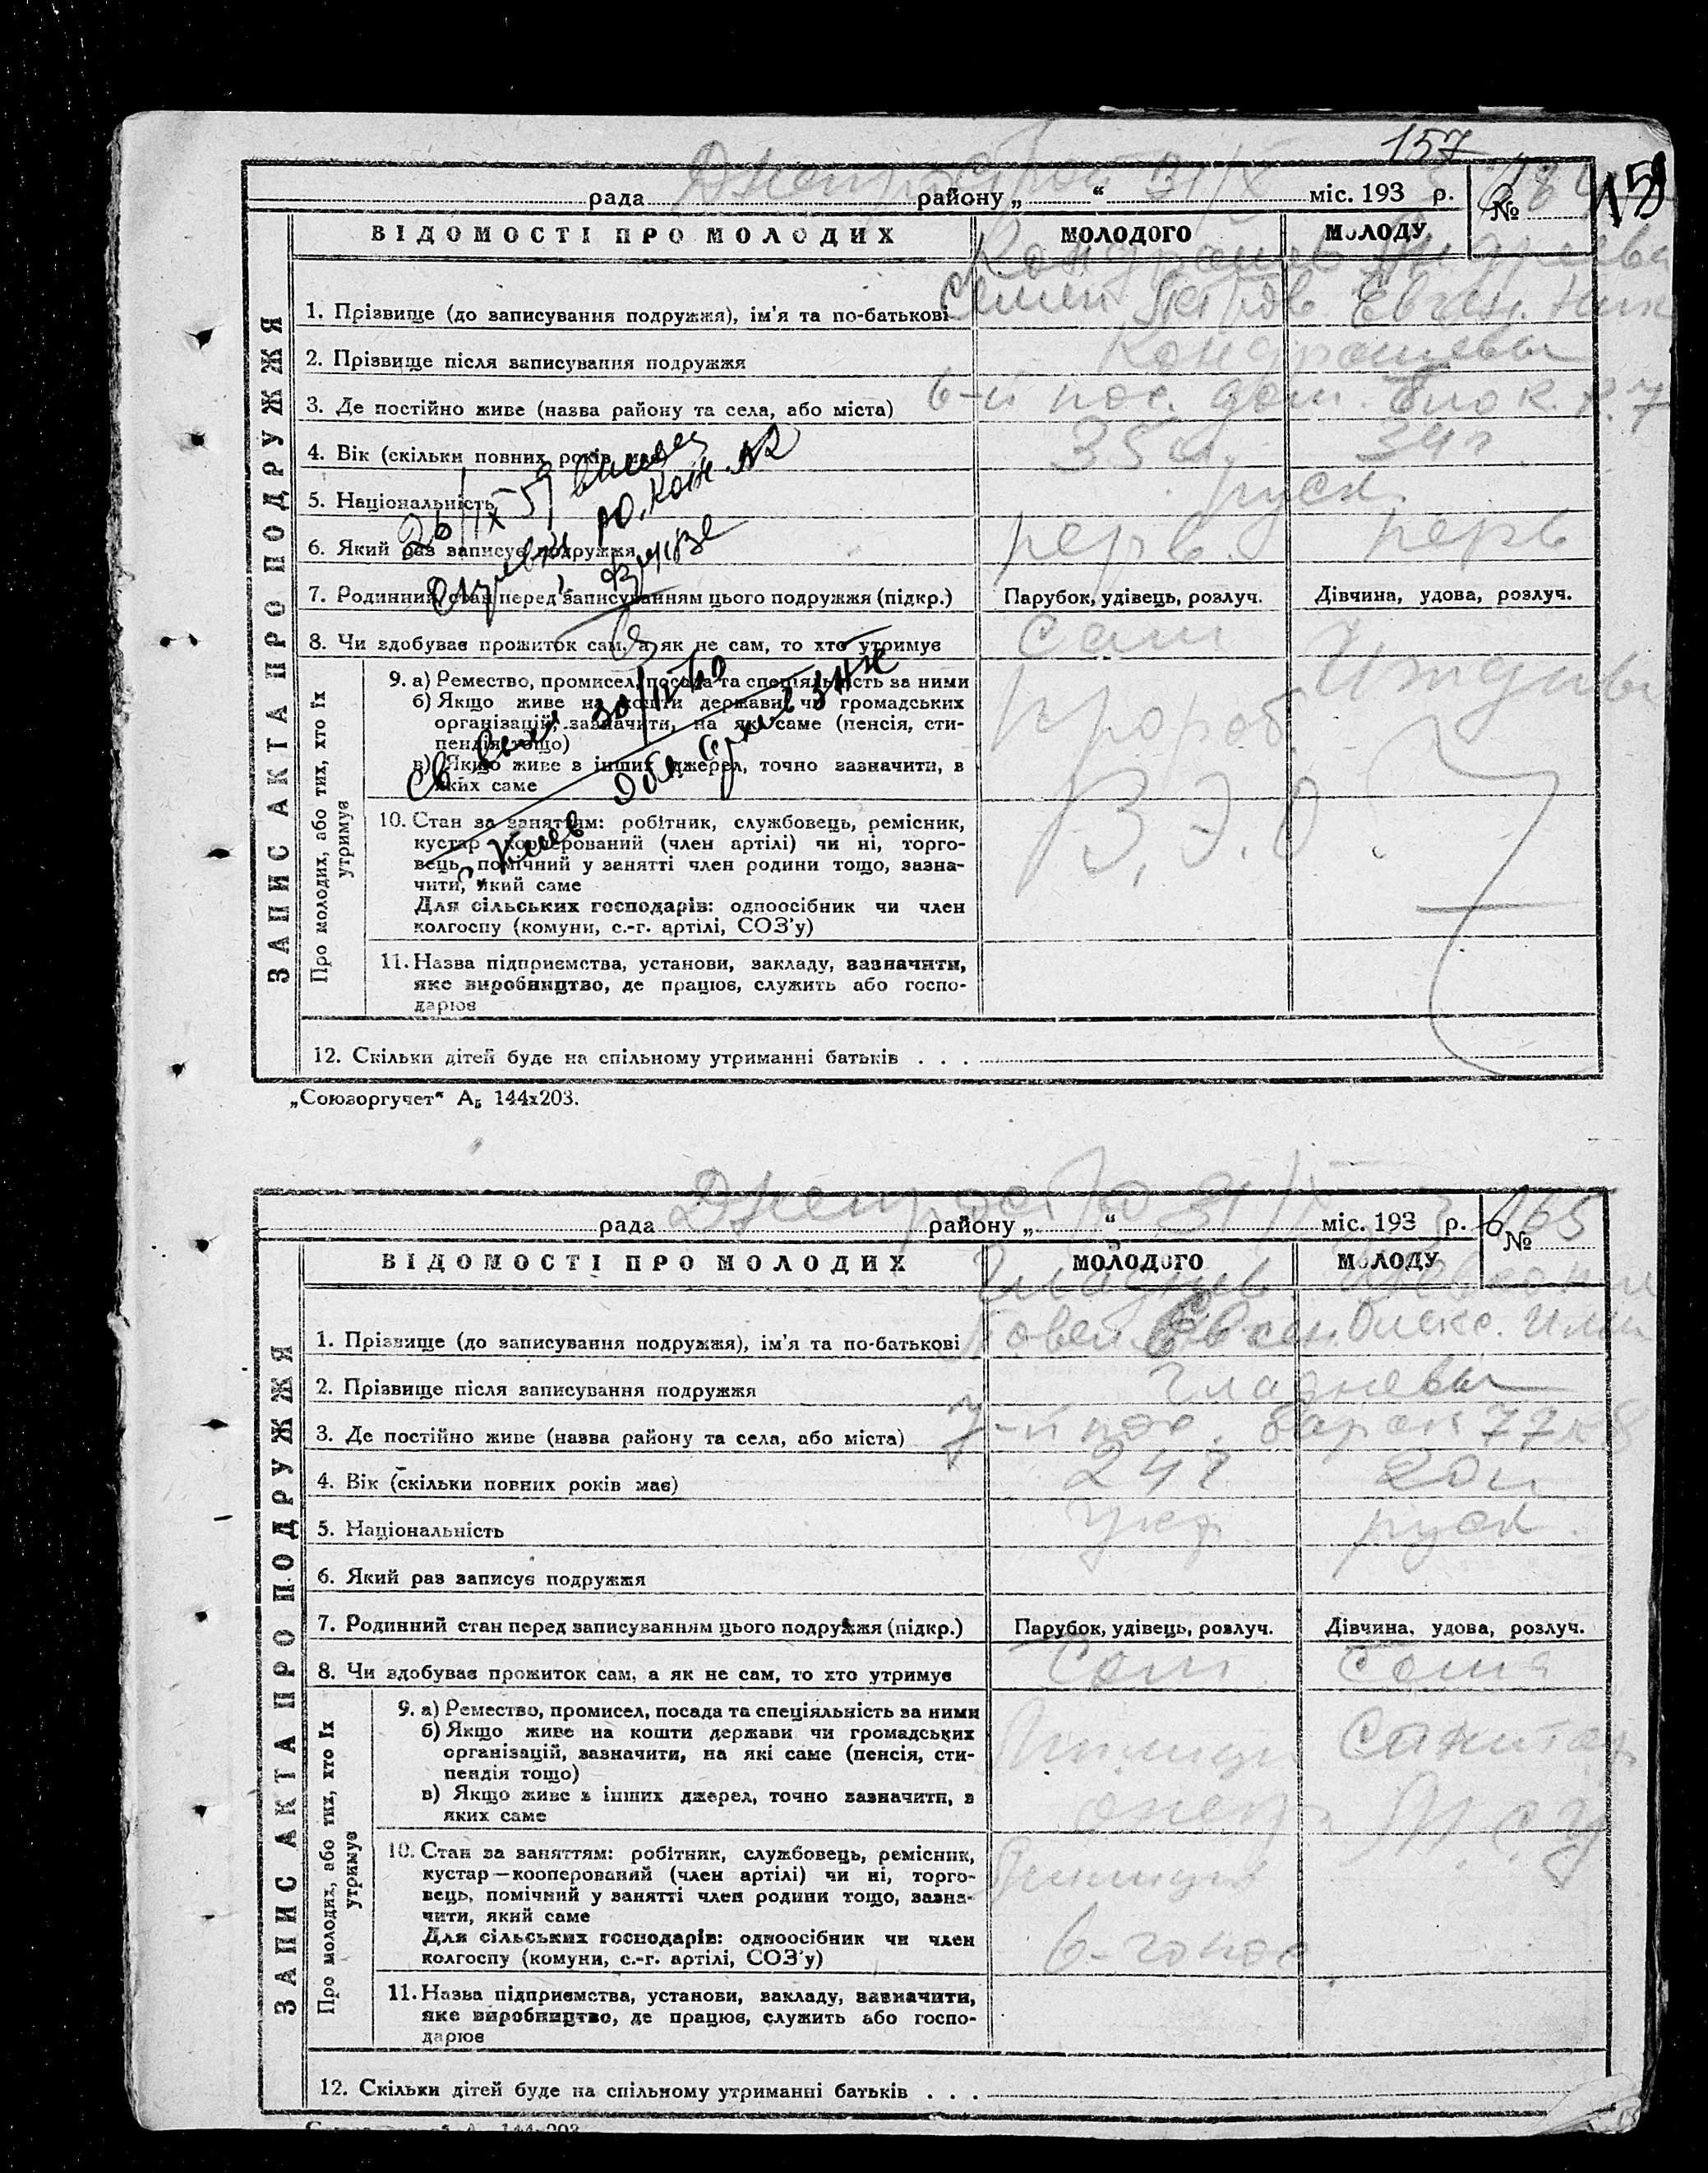 157
158
Днепрострой 31/X
рада района „ “ міс. 193 р. №
ВІДОМОСТІ ПРО МОЛОДИХ МОЛОДОГО МОЛОДУ
ЗАПИС АКТА ПРО ПОДРУЖЖЯ
Кондрашев Андреева
1. Прізвище (до записування подружжя), ім'я та по-батькові Семен Петров Евген. Ник
2. Прізвище після записування подружжя Кондрашевы
3. Де постійно живе (назва району та села, або міста) 6-й пос. дом. блок. к. 7
4. Вік (скільки повних років має) 35 л. 34 г
5. Національність руск.
6. Який раз записує подружжя перв. перв
7. Родинний стан перед записуванням цього подружжя (підкр.) Парубок, удівець, розлуч. Дівчина, удова, розлуч.
8. Чи здобуває прожиток сам, а як не сам, то хто утримує сам Иждив
Про молодих, або тих, хто їх утримує
9. а) Ремество, промисел, посада та спеціяльність за ними прораб.
б) Якщо живе на кошти держави чи громадських
організацій, зазначити, на які саме (пенсія, сти-
пендія тощо)
в) Якщо живе з інших джерел, точно зазначити, в
яких саме
10. Стан за заняттям: робітник, службовець, ремісник, В.Э.О
кустар—кооперований (член артілі) чи ні, торго-
вець, помічний у занятті член родини тощо, зазна-
чити, який саме
Для сільських господарів: одноосібник чи член
колгоспу (комуни, с.-г. артілі, СОЗ'у)
11. Назва підприємства, установи, закладу, зазначити,
яке виробництво, де працює, служить або госпо-
дарює
12. Скільки дітей буде на спільному утриманні батьків . . .
„Союзоргучет“ А₅ 144х203.
31/
рада району „ “ міс. 193 р. № 165
ВІДОМОСТІ ПРО МОЛОДИХ МОЛОДОГО МОЛОДУ
ЗАПИС АКТА ПРО ПОДРУЖЖЯ
1. Прізвище (до записування подружжя), ім'я та по-батькові Олекс.
2. Прізвище після записування подружжя
3. Де постійно живе (назва району та села, або міста) 7-й пос. барак 77 к 8
4. Вік (скільки повних років має) 24 г. 20 л
5. Національність укр. руск.
6. Який раз записує подружжя
7. Родинний стан перед записуванням цього подружжя (підкр.) Парубок, удівець, розлуч. Дівчина, удова, розлуч.
8. Чи здобуває прожиток сам, а як не сам, то хто утримує Сам Сама
Про молодих, або тих, хто їх утримує
9. а) Ремество, промисел, посада та спеціяльність за ними Санитар
б) Якщо живе на кошти держави чи громадських
організацій, зазначити, на які саме (пенсія, сти-
пендія тощо)
в) Якщо живе з інших джерел, точно зазначити, в
яких саме
10. Стан за заняттям: робітник, службовець, ремісник,
кустар—кооперований (член артілі) чи ні, торго-
вець, помічний у занятті член родини тощо, зазна-
чити, який саме
Для сільських господарів: одноосібник чи член 6-го пос
колгоспу (комуни, с.-г. артілі, СОЗ'у)
11. Назва підприємства, установи, закладу, зазначити,
яке виробництво, де працює, служить або госпо-
дарює
12. Скільки дітей буде на спільному утриманні батьків . . .